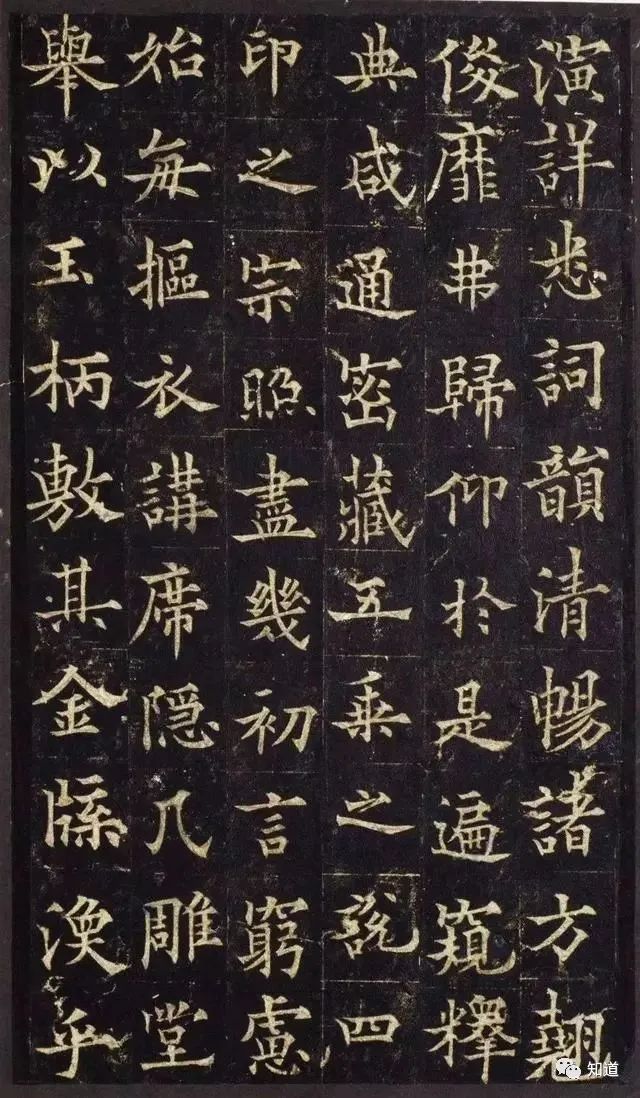 演詳悉詞韻清暢諸方翹
俊靡弗歸仰於是遍窺釋
典咸通密藏五乘之說四
印之宗照盡幾初言窮慮
始每摳衣講席隐几雕堂
舉以玉柄敷其金牒渙乎
知道